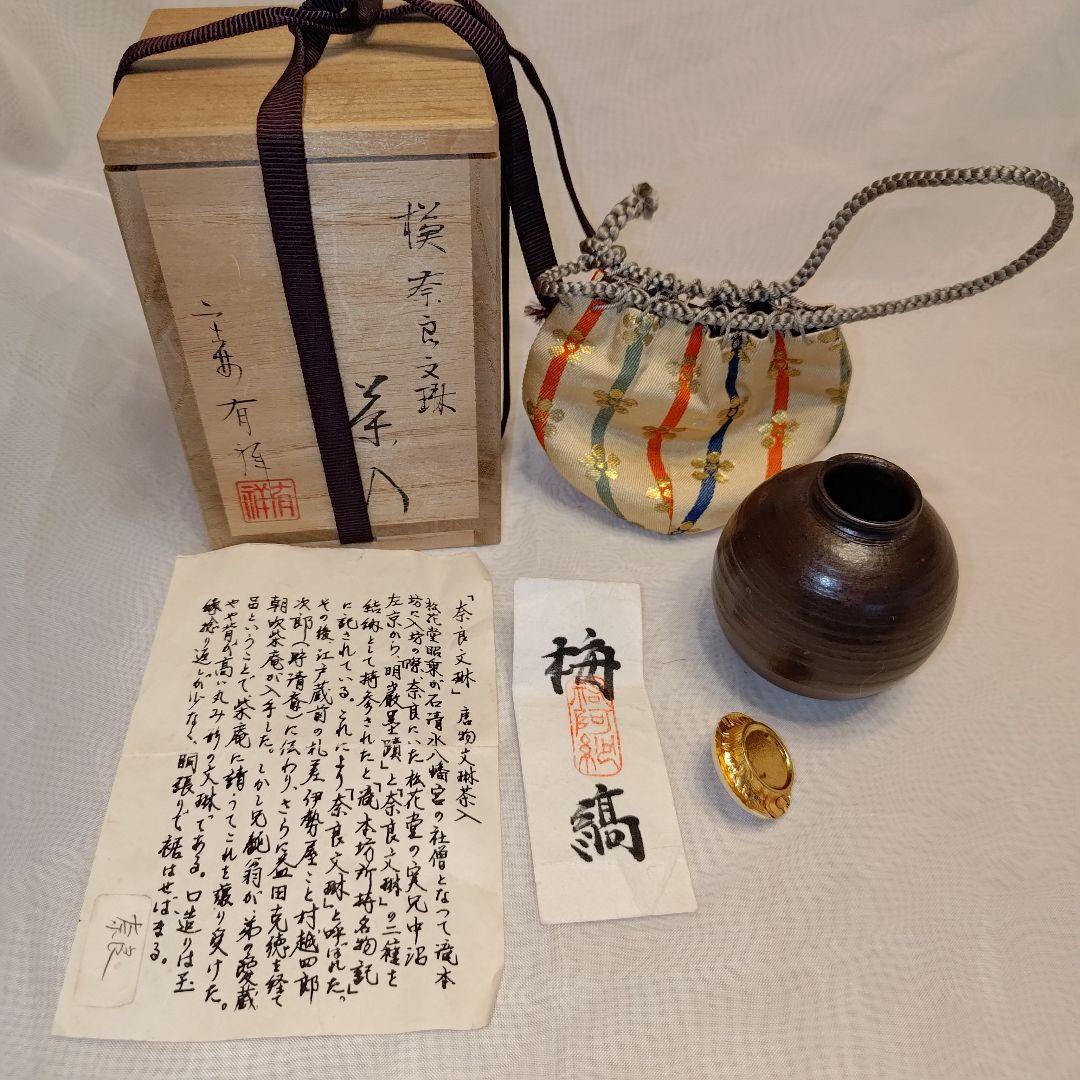 模 奈良文琳
茶入
有祥
有祥
「奈良文琳」 唐物文琳茶入
松花堂昭乗が石清水八幡宮の社僧となつて滝本
坊に入坊の際、奈良にいた松花堂の実兄中沼
左京から、「明巌墨蹟」と「奈良文琳」の二種を
結納として持参されたと「滝本坊所持名物記」
に記されている。これにより「奈良文琳」と呼ばれた。
その後、江戸蔵前の札差伊勢屋こと村越四郎
次郎(野清斎)に伝わり、さらに益田克徳を経て
朝吹柴庵が入手した。しかし兄鈍翁が、弟の愛蔵
品ということで柴庵に請うてこれを譲り受けた。
やや背が高い丸み形の文琳である。口造りは玉
縁捻り返しが少なく、胴張りで裾はせばまる。
奈良
梅
縞